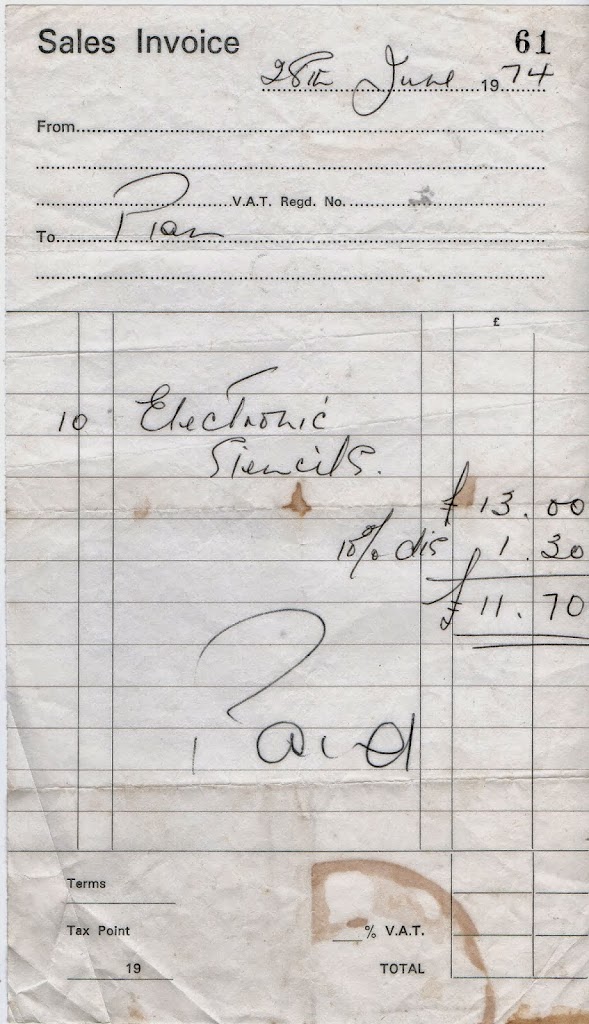 Sales Invoice 61
28th June 1974
From
V.A.T. Regd. No.
To
£
10 Electronic
Stencils.
£ 13.00
10% dis 1.30
£ 11.70
Paid
Terms
Tax Point
% V.A.T.
19
TOTAL